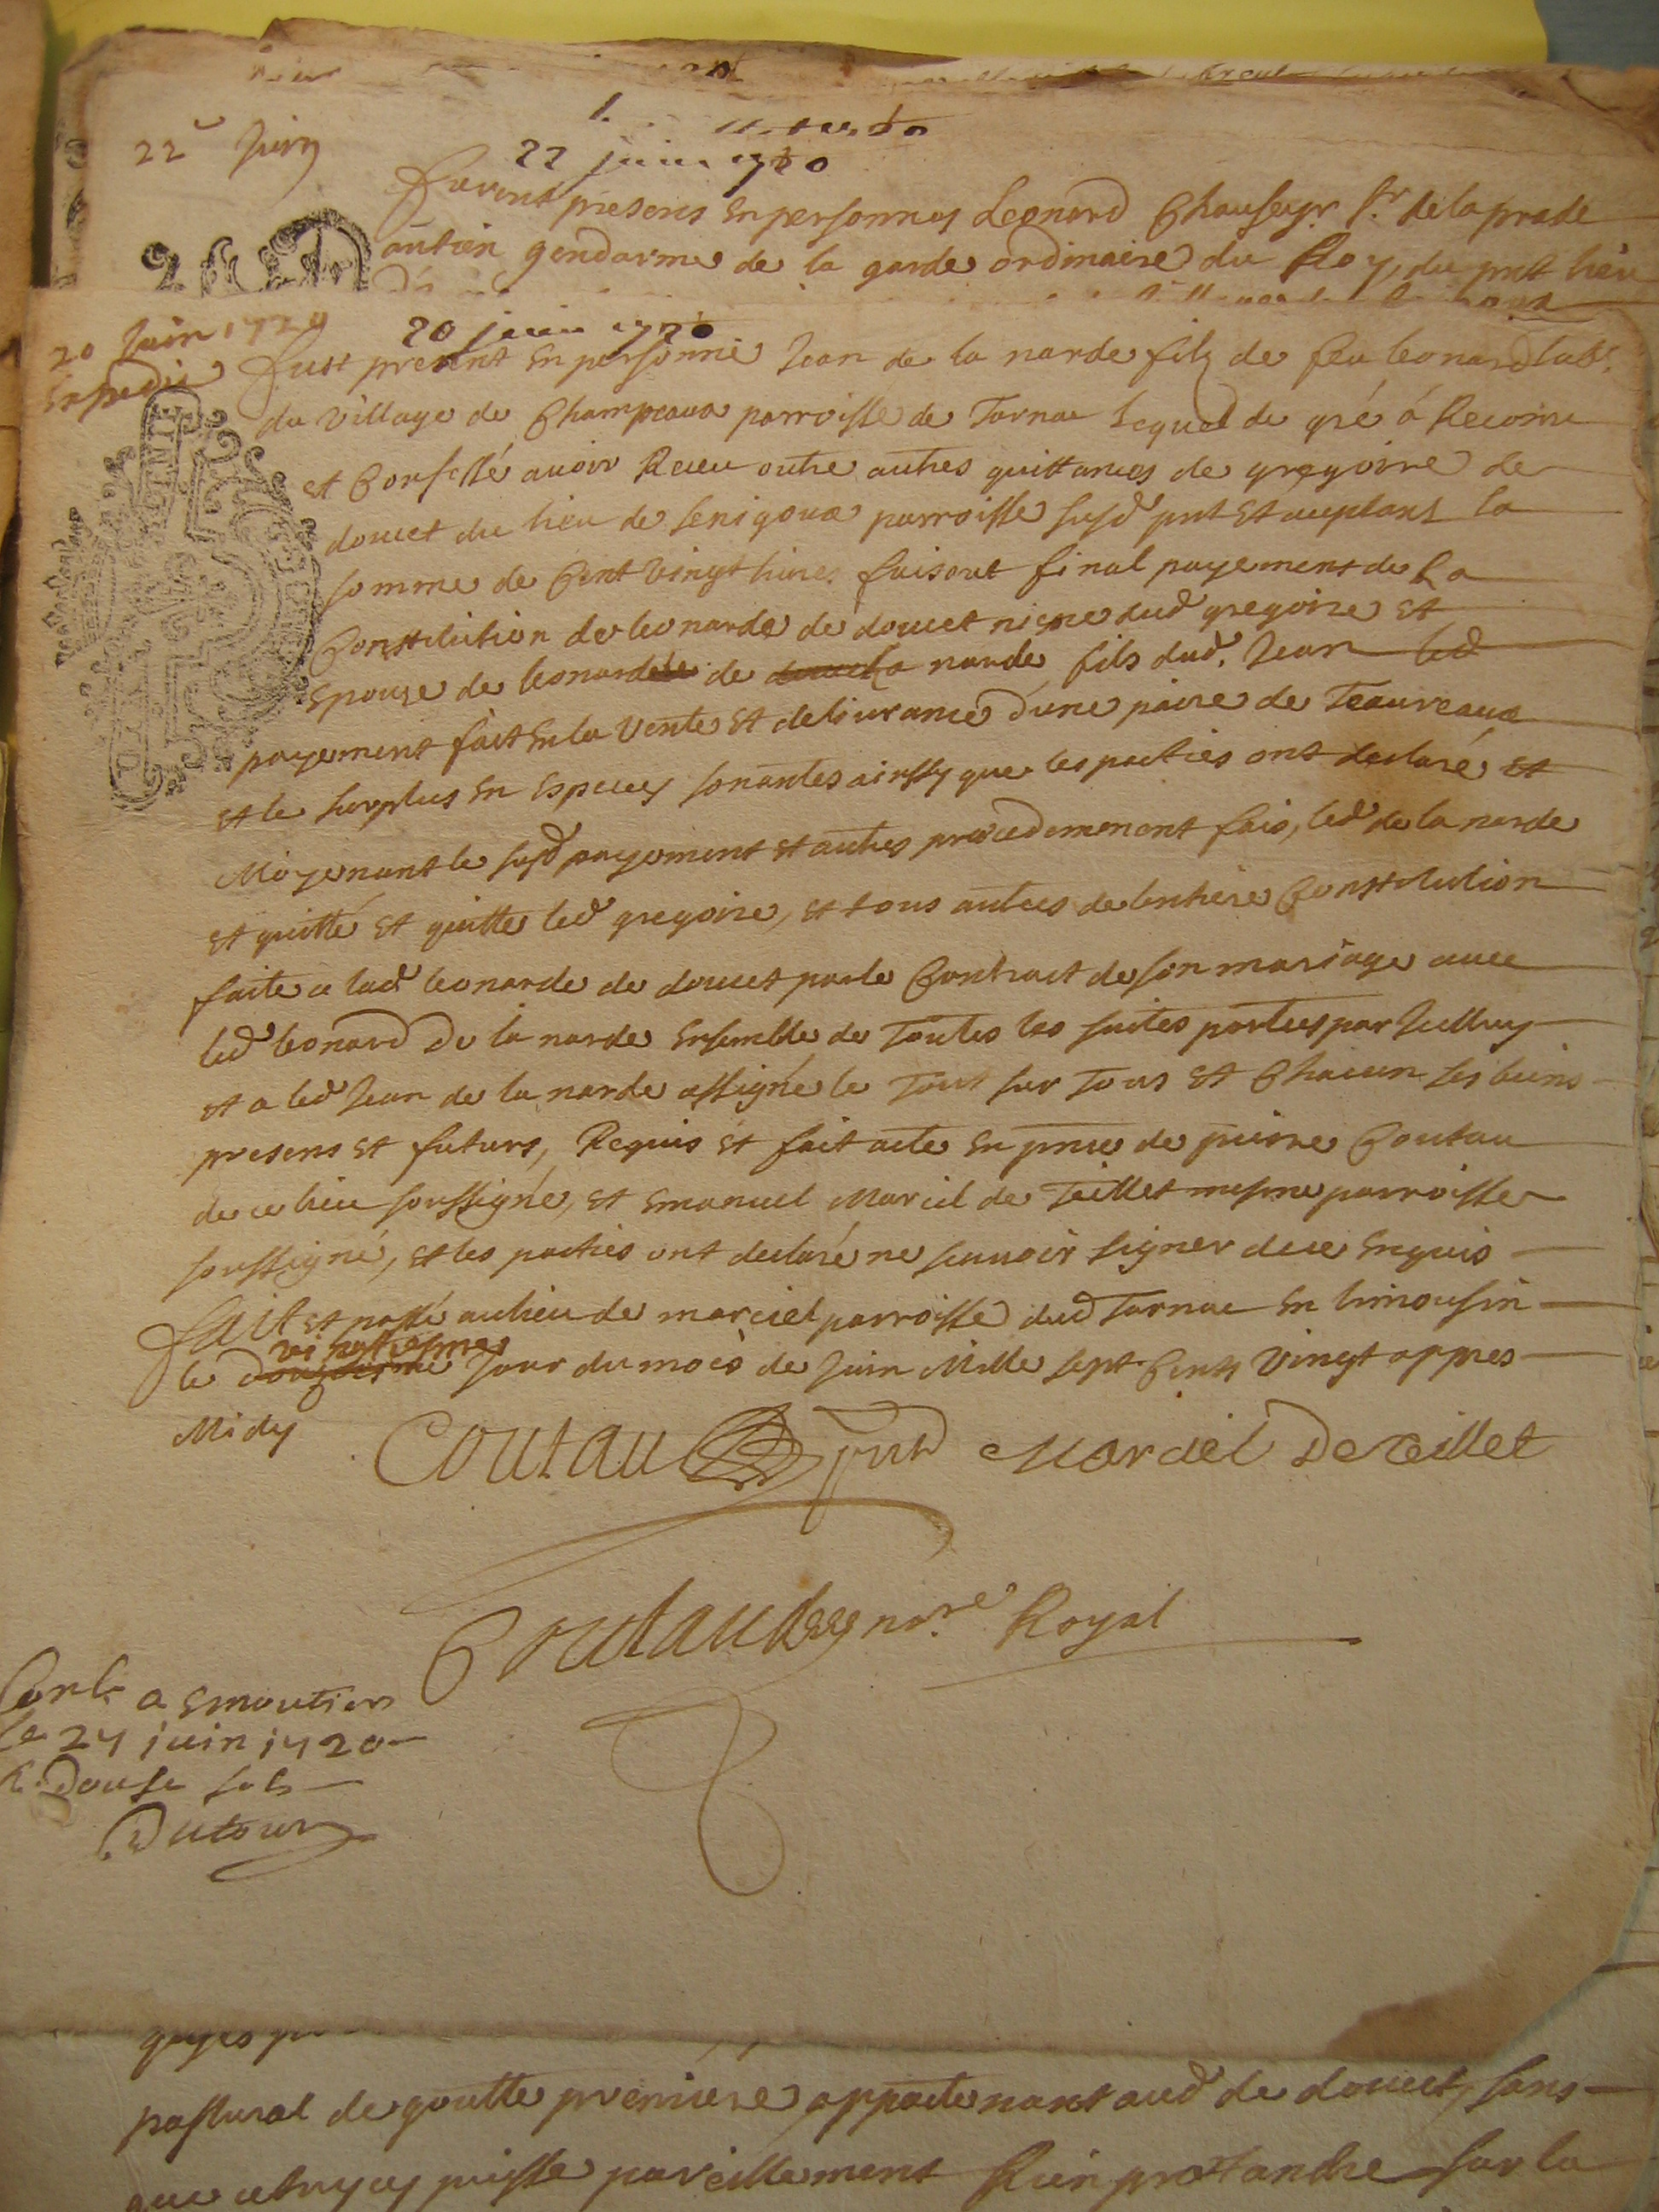 22e Juin
22 juin 1720
Furent presens en personnes Leonard Chauseyr Sr. de la prade
antien gendarme de la garde ordinaire du Roy, du pnt lieu
20 Juin 1720
Expedié
20 juin 1720
Fust present en personne Jean de la narde filz de feu leonard labr.
du village de Champeaux parroisse de Tarnac lequel de gré á Reconu
et Confessé avoir Receu outre autres quittances de gregoire de
doucet du lieu de Senigoux parroisse susd pnt et aceptant la
somme de Cent vingt livres faisant final payement de La
Constitution de leonarde de doucet niepce dud gregoire et
Epouze de leonard de la narde fils dud. Jean led
payement fait en la vente et delivrance d'une paire de Teaureaux
et le surplus en especes sonantes ainssy que les parties ont declaré et
Moyenant le susd payement et autres precedemement fais, led de la narde
et quitté et quitte led gregoire, et tous autres de lentiere Constitution
faite a lad leonarde de doucet par le Contract de son mariage avec
led leonard De la narde Ensemble de Toutes les suites portees par Jcelluy
et a led Jean de la narde assigné le Tout sur Tous et Chacun ses biens
presens et futurs, Requis et fait acte en pnce de pierre Coutau
de ce lieu soussigné, et Emanuel Marciel de Teillet mesme parroisse
soussigné, et les parties ont declaré ne scavoir signer de ce Enquis
Fait et passé au lieu de marciel parroisse dud Tarnac en limousin
vingtiesme
le douziesme Jour du mois de Juin Mille sept Cents Vingt appres
Midy
Coutau pnt Marciel De Teillet
Coutaud nore Royal
Conle a Emoutiers
le 24 juin 1720
R. Douse sols
Dutour
pastural de goutte premiere appartenant aud de doucet, sans
que puisse pareillement Rien pretandre sur la